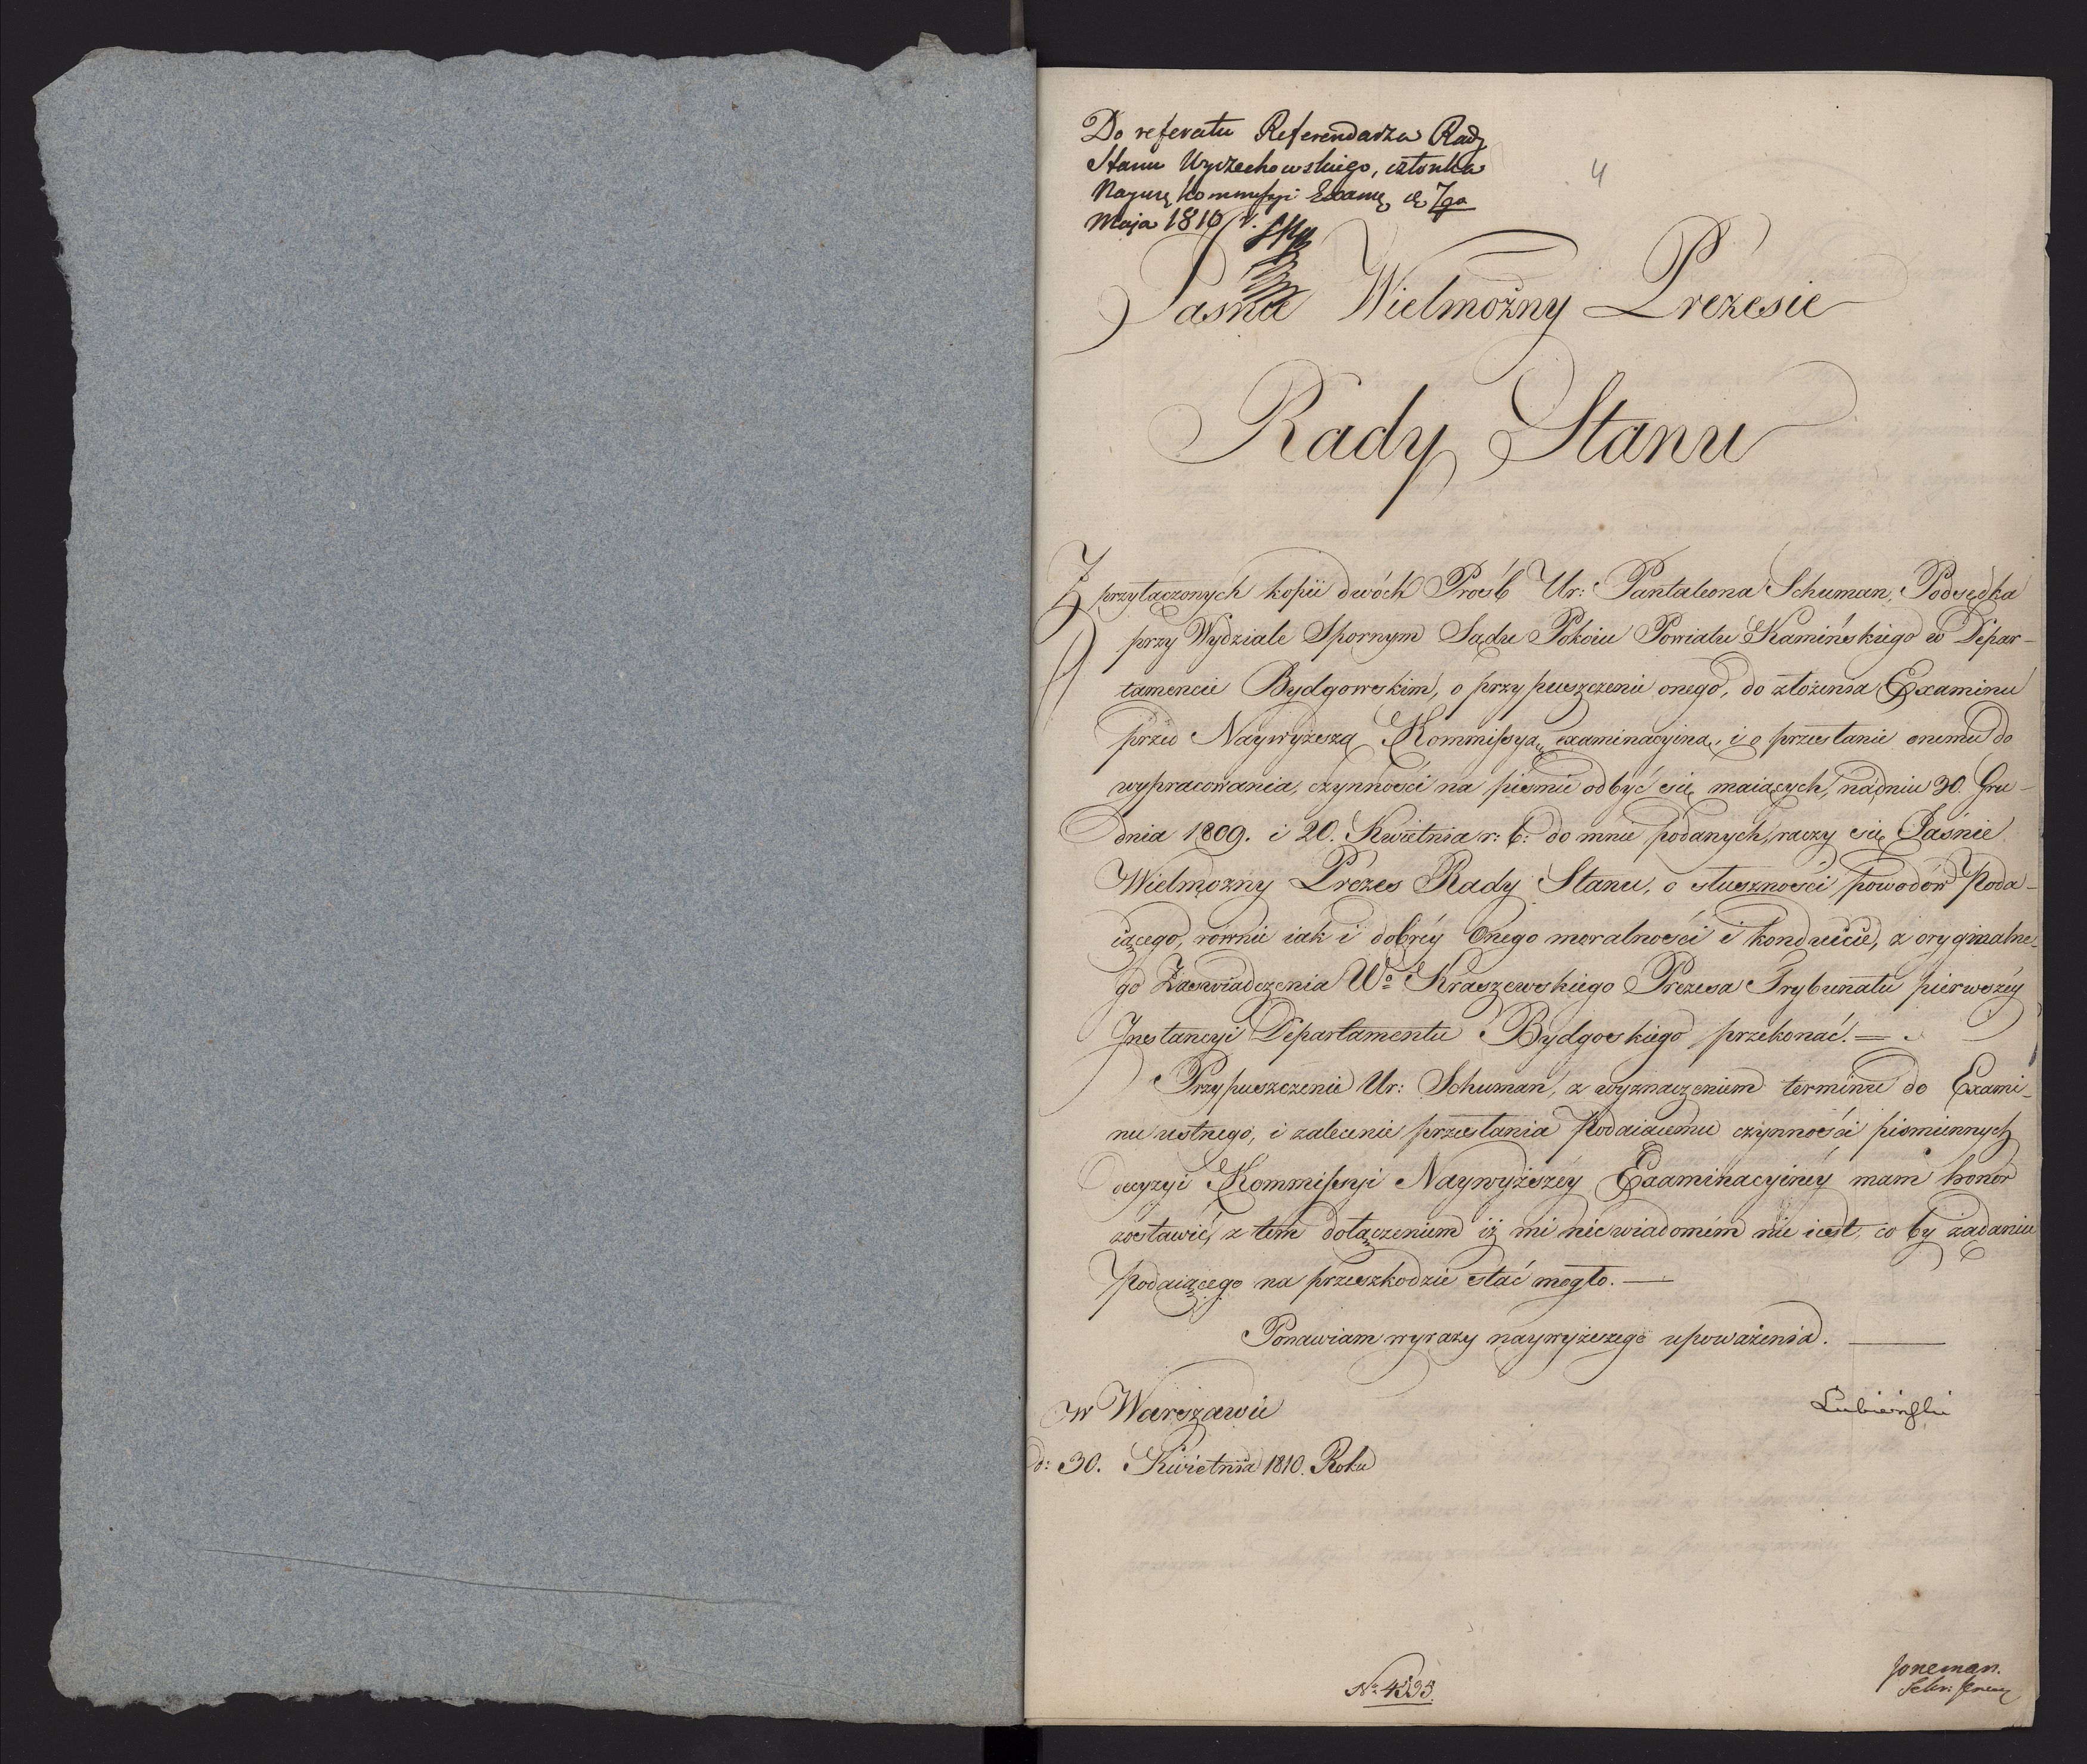 Do referatu Referendarza Rady
Stanu Wyczechowskiego, członka
Naywyż Kommissyi Exam. d. 7go
Maja 1810 r.
4
Jaśnie Wielmożny Prezesie
Rady Stanu
Z przyłączonych kopii dwóch Prośb Ur: Pantaleona Schuman, Podsędka
przy Wydziale Spornym Sądu Pokoiu Powiatu Kamińskiego w Depar-
tamencie Bydgowskim, o przypuszczenie onego, do złożenia Examinu
przed Naywyższą Kommissyą examinacyiną, i o przesłanie onemu do
wypracowania, czynności na piśmie odbyć się maiących, na dniu 30. Gru-
dnia 1809. i 20. Kwietnia r: b: do mnie podanych, raczy się Jaśnie
Wielmożny Prezes Rady Stanu, o słuszności powodów Poda-
iącego, równie iak i dobréy Onego moralności i konduicie, z oryginalne-
go Zaświadczenia Wo Kraszewskiego Prezesa Trybunału pierwszéy
Jnstancyi Departamentu Bydgoskiego przekonać. —
Przypuszczenie Ur: Schuman, z wyznaczeniem terminu do Exami-
nu ustnego, i zalecenie przesłania Podaiącemu czynności piśmiennych
decyzyi Kommissyi Naywyższéy Examinacyinéy mam honor
zostawić, z tem dołączeniem iż mi nic wiadomém nie iest, co by żądaniu
Podaiącego na przeszkodzie stać mogło. —
Ponawiam wyrazy naywyższego upoważenia. —
w Warszawie
Lubieński
d: 30. Kwietnia 1810. Roku
No 4595.
Joneman.
Sekr: Jener